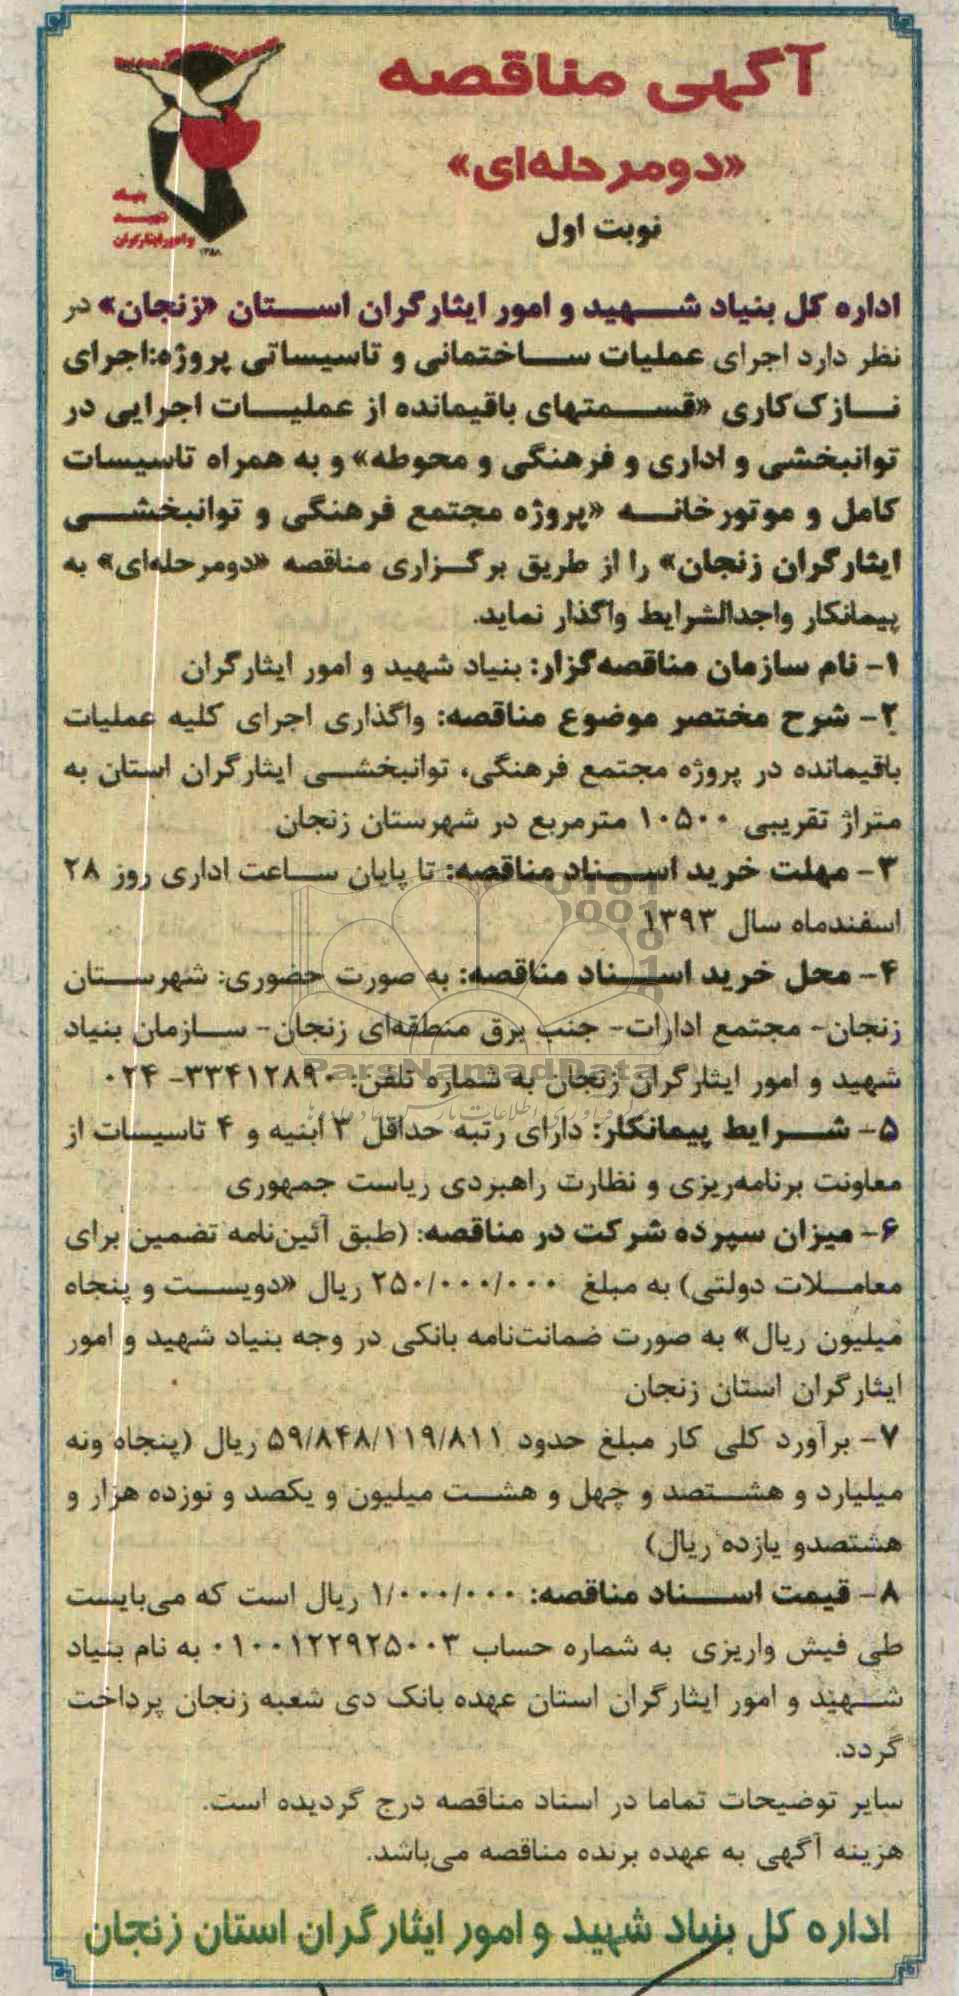 آگهی مناقصه
«دومرحله‌ای»
نوبت اول
بنیاد
شهید
و امور ایثارگران
۱۳۵۸
اداره کل بنیاد شهید و امور ایثارگران استان «زنجان» در
نظر دارد اجرای عملیات ساختمانی و تاسیساتی پروژه:اجرای
نازک‌کاری «قسمتهای باقیمانده از عملیات اجرایی در
توانبخشی و اداری و فرهنگی و محوطه» و به همراه تاسیسات
کامل و موتورخانه «پروژه مجتمع فرهنگی و توانبخشی
ایثارگران زنجان» را از طریق برگزاری مناقصه «دومرحله‌ای» به
پیمانکار واجدالشرایط واگذار نماید.
۱- نام سازمان مناقصه‌گزار: بنیاد شهید و امور ایثارگران
۲- شرح مختصر موضوع مناقصه: واگذاری اجرای کلیه عملیات
باقیمانده در پروژه مجتمع فرهنگی، توانبخشی ایثارگران استان به
متراژ تقریبی ۱۰۵۰۰ مترمربع در شهرستان زنجان
۳- مهلت خرید اسناد مناقصه: تا پایان ساعت اداری روز ۲۸
اسفندماه سال ۱۳۹۳
۴- محل خرید اسناد مناقصه: به صورت حضوری: شهرستان
زنجان- مجتمع ادارات- جنب برق منطقه‌ای زنجان- سازمان بنیاد
شهید و امور ایثارگران زنجان به شماره تلفن: ۳۳۴۱۲۸۹۰- ۰۲۴
ParsNamadData
۵- شرایط پیمانکار: دارای رتبه حداقل ۳ ابنیه و ۴ تاسیسات از
معاونت برنامه‌ریزی و نظارت راهبردی ریاست جمهوری
۶- میزان سپرده شرکت در مناقصه: (طبق آئین‌نامه تضمین برای
معاملات دولتی) به مبلغ ۲۵۰/۰۰۰/۰۰۰ ریال «دویست و پنجاه
میلیون ریال» به صورت ضمانت‌نامه بانکی در وجه بنیاد شهید و امور
ایثارگران استان زنجان
۷- برآورد کلی کار مبلغ حدود ۵۹/۸۴۸/۱۱۹/۸۱۱ ریال (پنجاه ونه
میلیارد و هشتصد و چهل و هشت میلیون و یکصد و نوزده هزار و
هشتصدو یازده ریال)
۸- قیمت اسناد مناقصه: ۱/۰۰۰/۰۰۰ ریال است که می‌بایست
طی فیش واریزی به شماره حساب ۰۱۰۰۱۲۲۹۲۵۰۰۳ به نام بنیاد
شهید و امور ایثارگران استان عهده بانک دی شعبه زنجان پرداخت
گردد.
سایر توضیحات تماما در اسناد مناقصه درج گردیده است.
هزینه آگهی به عهده برنده مناقصه می‌باشد.
اداره کل بنیاد شهید و امور ایثارگران استان زنجان